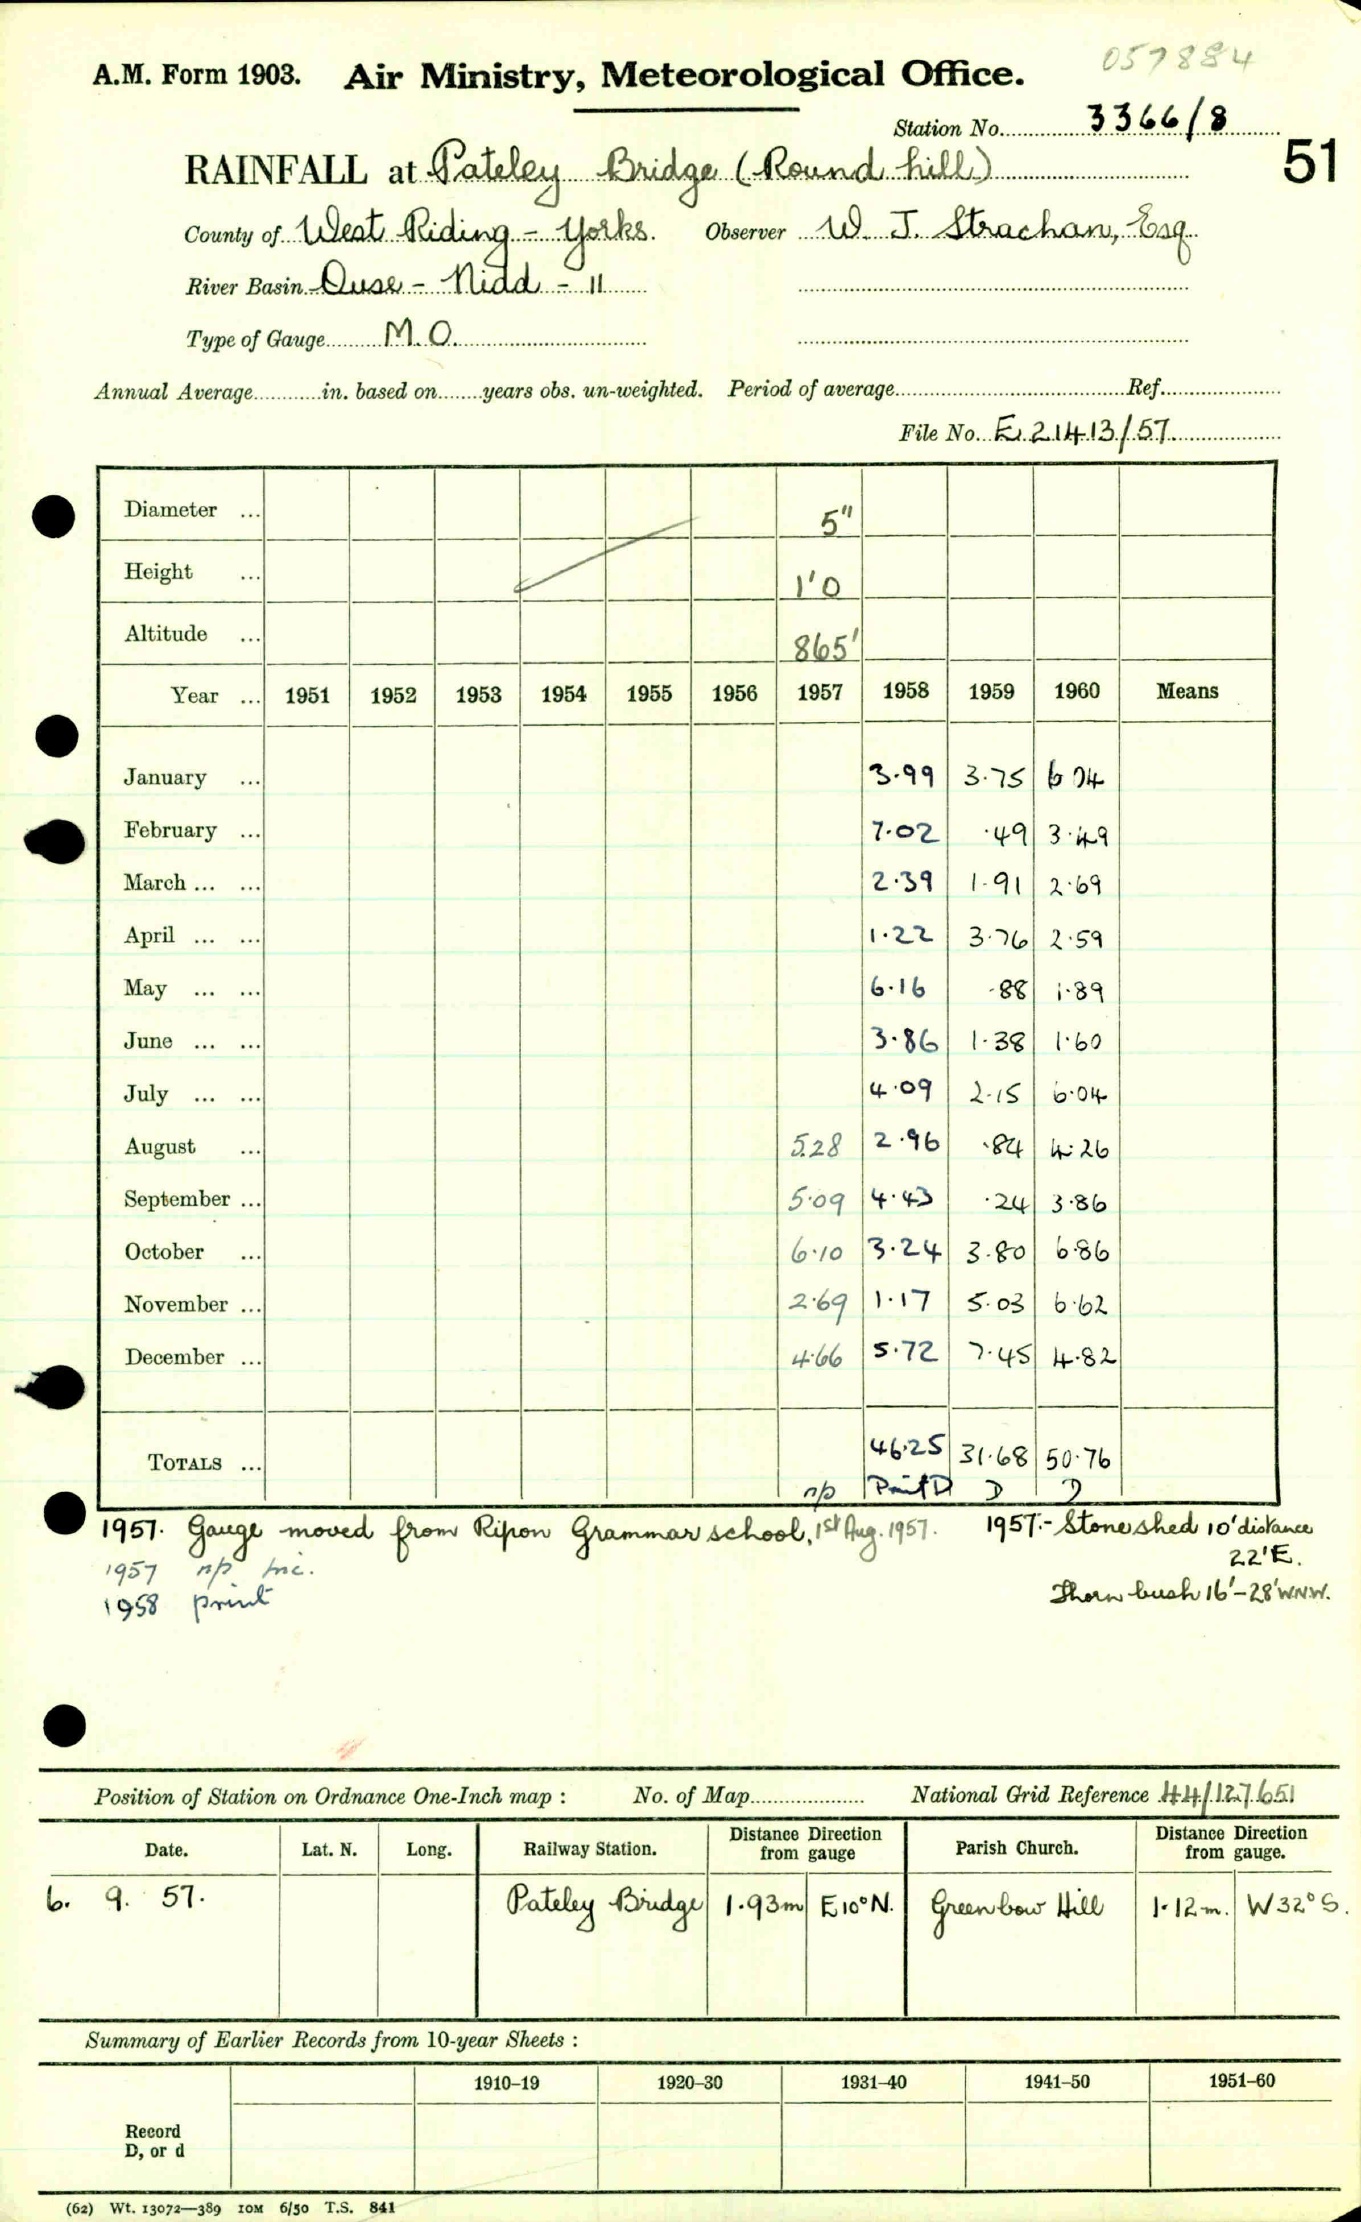 057884
A.M. Form 1903. Air Ministry, Meteorological Office.
Station No. 3366/8
51
RAINFALL at Pateley Bridge (Round hill)
County of West Riding - Yorks. Observer W. J. Strachan, Esq
River Basin Ouse - Nidd - 11
Type of Gauge M.O.
Annual Average............in. based on........years obs. un-weighted. Period of average............Ref............
File No. E 21413/57
Diameter ... 5"
Height ... 1'0
Altitude ... 865'
Year ... 1951 1952 1953 1954 1955 1956 1957 1958 1959 1960 Means
January ... 3.99 3.75 6 04
February ... 7.02 .49 3.49
March ... ... 2.39 1.91 2.69
April ... ... 1.22 3.76 2.59
May ... ... 6.16 .88 1.89
June ... ... 3.86 1.38 1.60
July ... ... 4.09 2.15 6.04
August ... 5.28 2.96 .84 4.26
September ... 5.09 4.43 .24 3.86
October ... 6.10 3.24 3.80 6.86
November ... 2.69 1.17 5.03 6.62
December ... 4.66 5.72 7.45 4.82
TOTALS ... 46.25 31.68 50.76
np Print D D D
1957. Gauge moved from Ripon Grammar school, 1st Aug. 1957. 1957.- Stone shed 10' distance
22'E.
1957 np inc.
Thorn bush 16'-28' W.N.W.
1958 print
Position of Station on Ordnance One-Inch map : No. of Map............ National Grid Reference 44/127651
Date. Lat. N. Long. Railway Station. Distance Direction from gauge Parish Church. Distance Direction from gauge.
6. 9. 57. Pateley Bridge 1.93m E10°N. Greenbow Hill 1.12m. W32°S.
Summary of Earlier Records from 10-year Sheets :
1910–19 1920–30 1931–40 1941–50 1951–60
Record
D, or d
(62) Wt. 13072—389 10M 6/50 T.S. 841